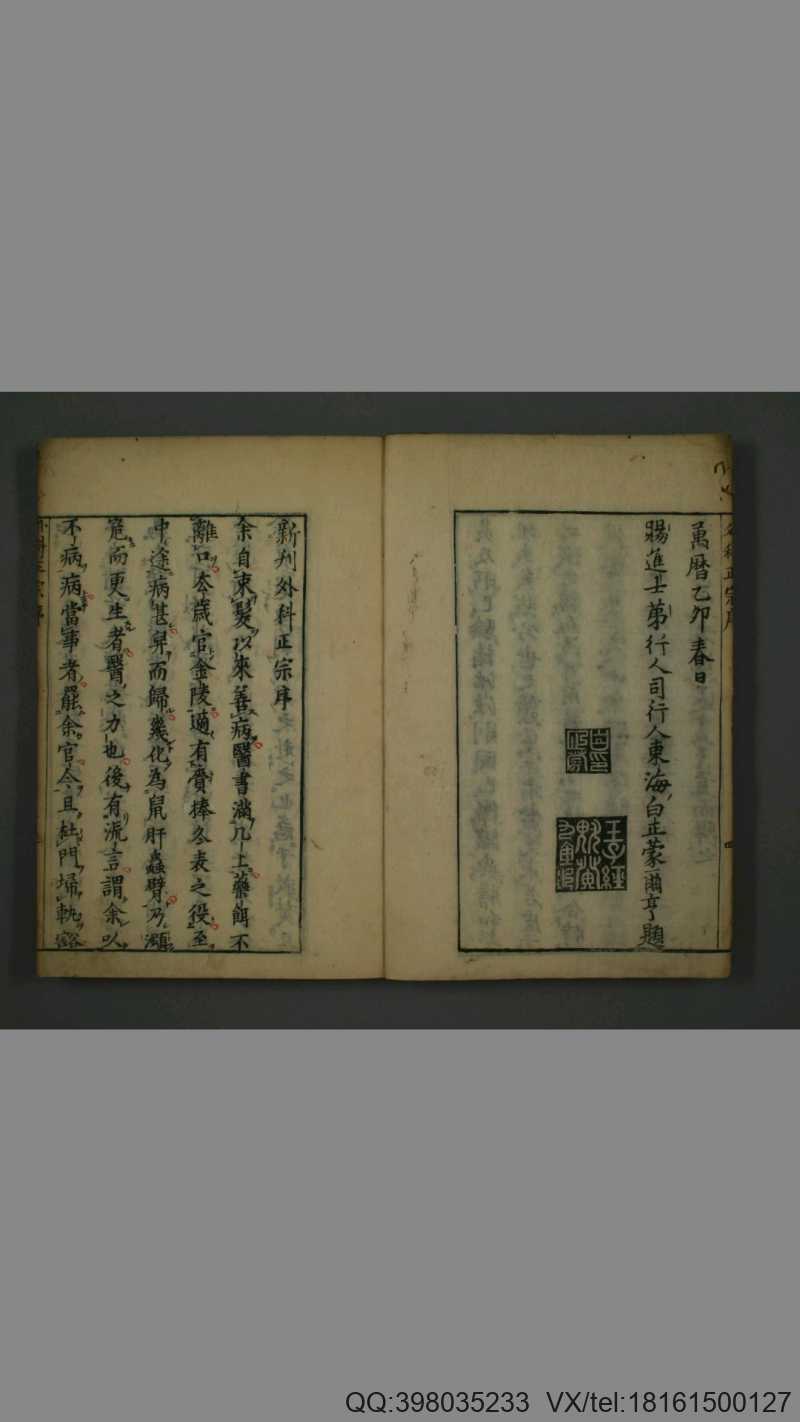 萬暦乙卯春日
賜進士弟行人司行人東海白正蒙爾亨題
新刋外科正宗序
余自束髮以來善病醫書滿几上藥餌不
離口夲歲官金陵適有賫捧冬表之役至
中途病甚舁而歸幾化為鼠肝蟲臂乃瀕
危而更生者醫之力也後有流言謂余以
不病病當事者罷余官今且杜門埽軌谿
QQ:398035233 VX/tel:18161500127